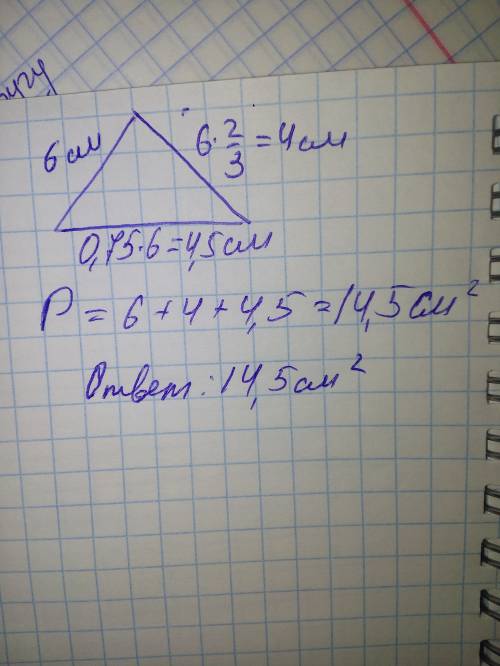 6 см
6 · 2/3 = 4 см
0,75 · 6 = 4,5 см
P = 6 + 4 + 4,5 = 14,5 см²
Ответ: 14,5 см²